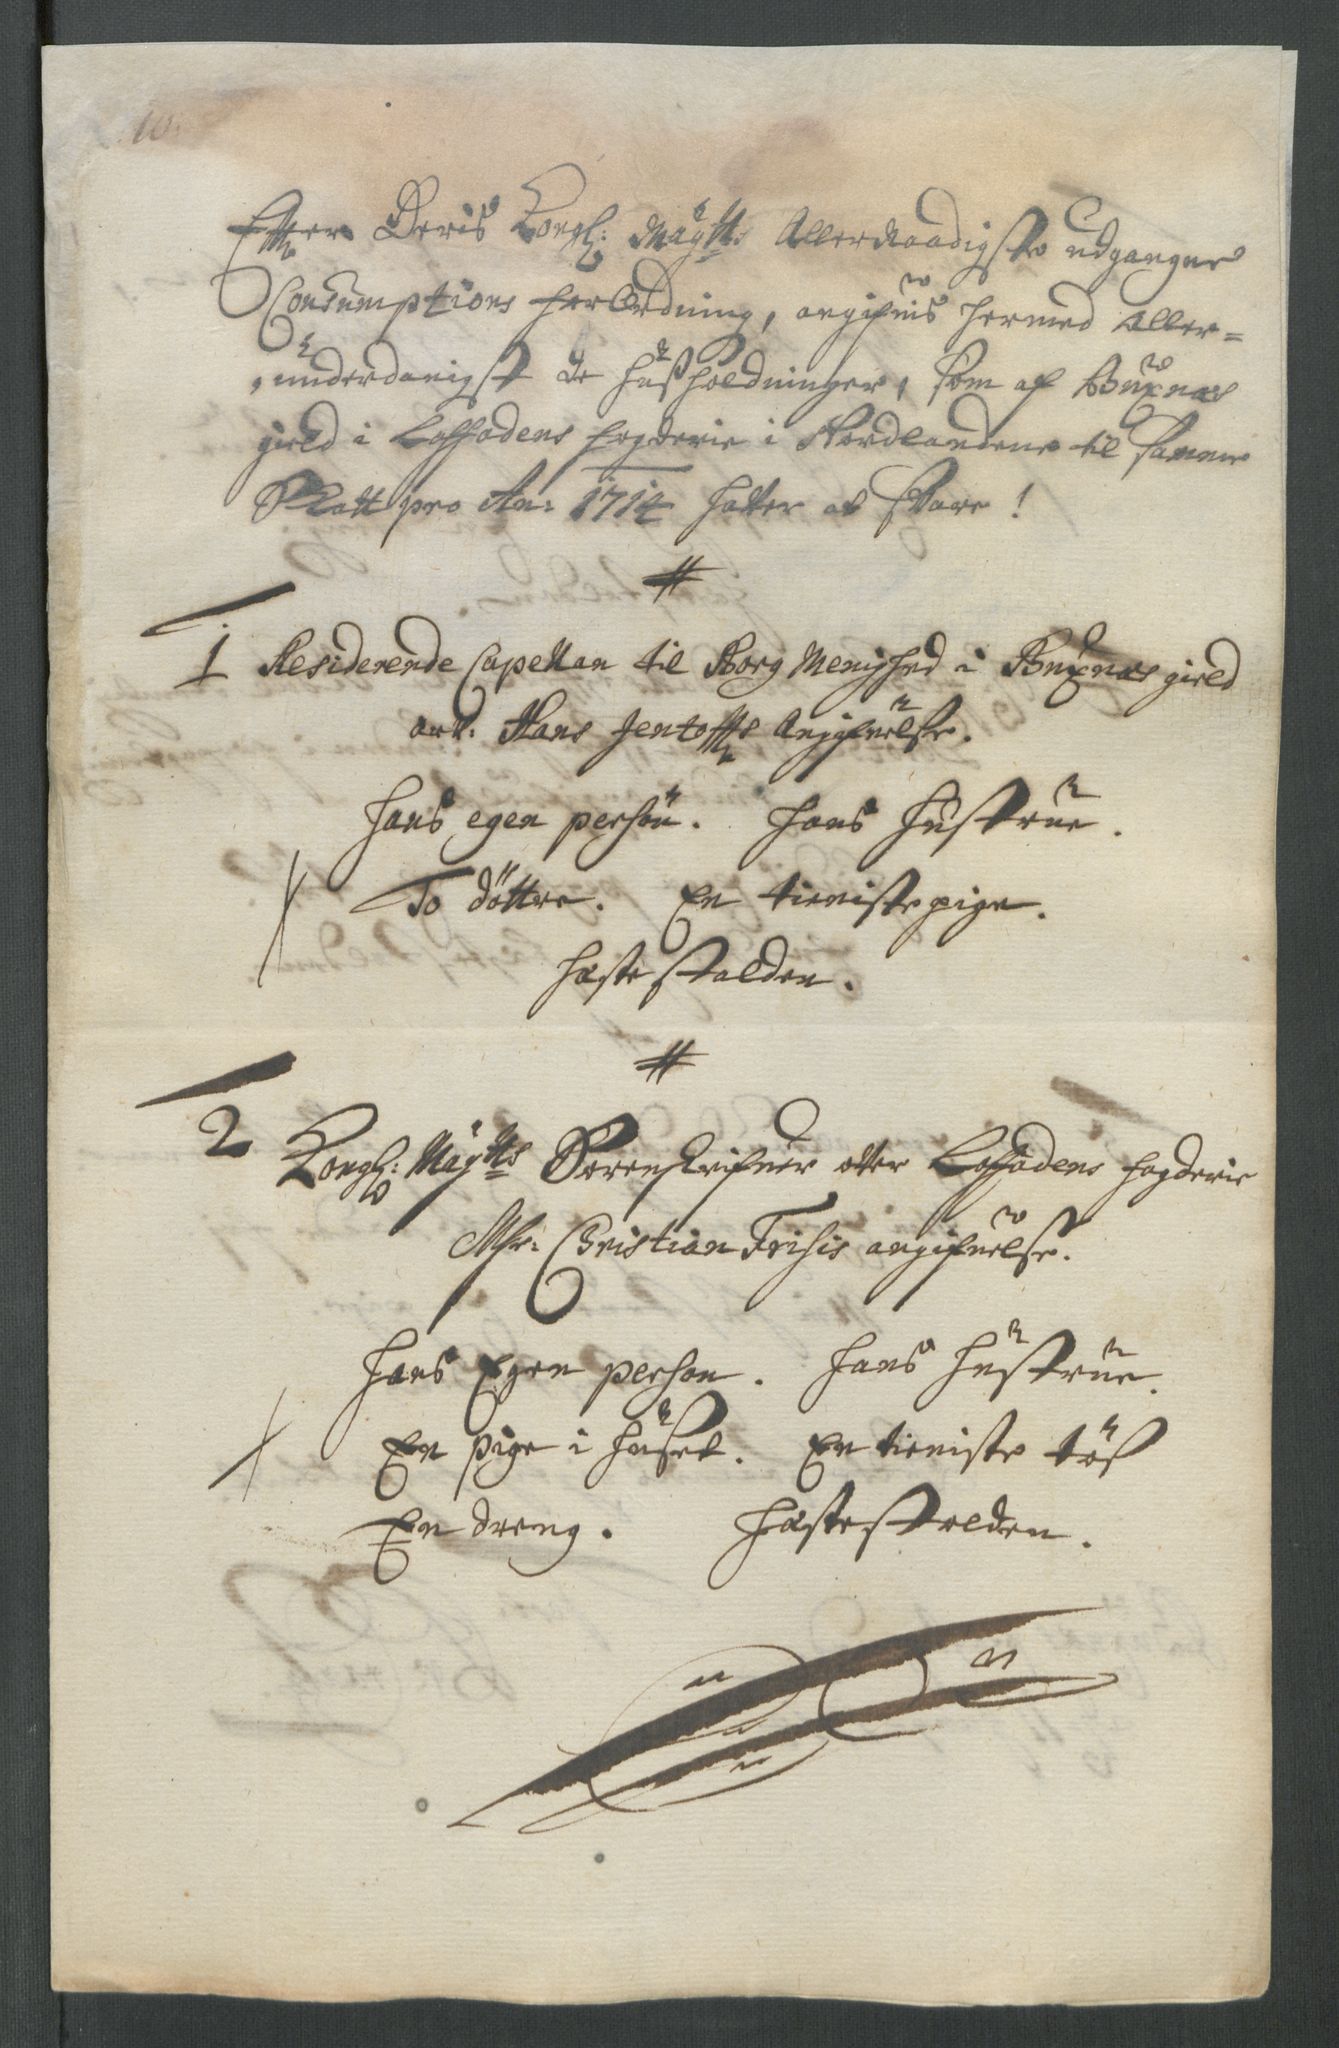 10.
Efter Deris Kongl: Maÿtts Allernaadigste udgangne
Consumptions forordning, angifues hermed Aller=
underdanigst de hußholdninger, som af Buxnæs
gield i Loffodens fogderie i Nordlandene til samme
Skatt pro An: 1714 hafver at svare!
1 Residerende Capellan til Borg Menighed i Buxnæs gield
Hans Jentofts Angifuelse.
hans egen persohn. hans hustrue.
To döttre. En tienistepige.
hæste Skolden.
2 Kongl: Maÿtts Sorenskrifuer ofver Loffodens fogderie
Mhr: Christian Frisis angifuelse.
hans Egen person. hans hustrue.
En pige i huset. En tieniste töß
En dreng. hæsteskolden.